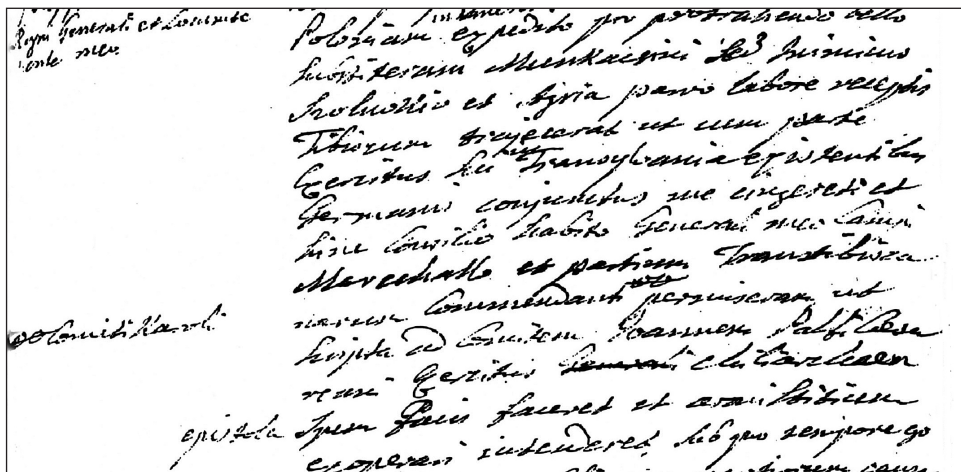 Regni Generali et Comite
meo
Poloniam expedito pro protrahendo bello
substiteram Munkacsini sed Inimicus
Szolnokio et Agria parvo labore receptis
Tibiscum trajecerat ut cum parte
Exercitus sui in Transylvania existentibus
Germanis conjunctus me cingeret et
hinc Consilio habito Generali meo Campi
Marechallo et partium Transtibisca
narum Commendanti permiseram ut
Comiti Karoli
scripta ad Comitem Joannem Palfi Caesa
reani Exercitus Generali
epistola Spem Pacis faceret et armistitium
exoperari intenderet, sub quo tempore ego